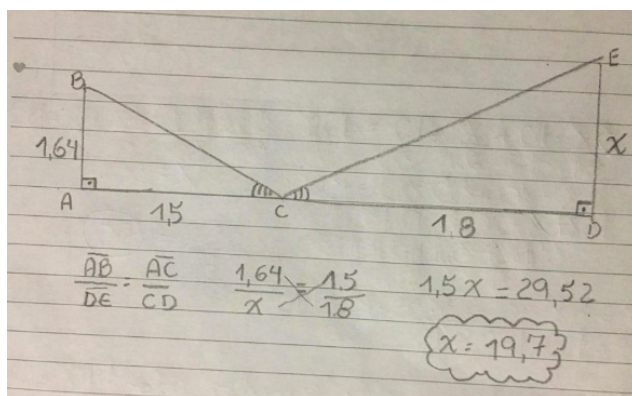 B E
1,64 x
A C D
1,5 1,8
AB/DE = AC/CD 1,64/x = 1,5/18 1,5x = 29,52
x = 19,7